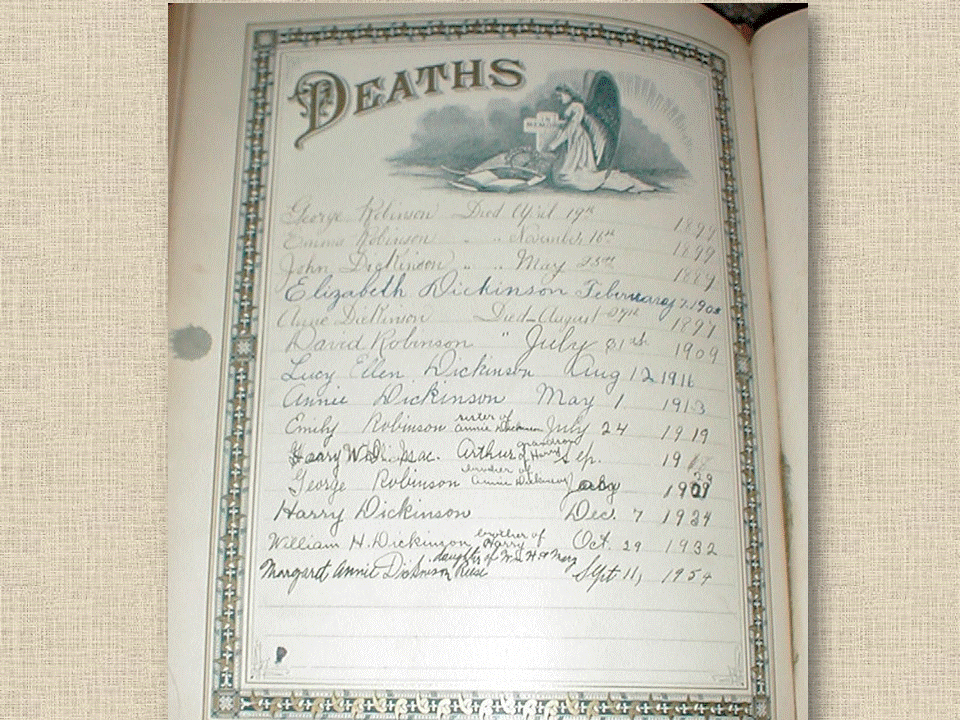 DEATHS
IN
MEMORIAM
George Robinson Died April 19th 1899
Emma Robinson " " November 16th 1899
John Dickinson " " May 23rd 1889
Elizabeth Dickinson February 7. 1908
Anne Dickinson Died August 1897
David Robinson " July 31st 1909
Lucy Ellen Dickinson Aug 12 1916
Annie Dickinson May 1 1913
sister of
Emily Robinson Annie Dickinson July 24 1919
grandson
Isac. Arthur of Harry Sep. 19
brother of
George Robinson Annie Dickinson 19
Harry Dickinson Dec. 7 1924
brother of
William H. Dickinson Harry Oct. 29 1932
daughter of Wm. H & Mary
Margaret Annie Dickinson Reese Sept 11, 1954